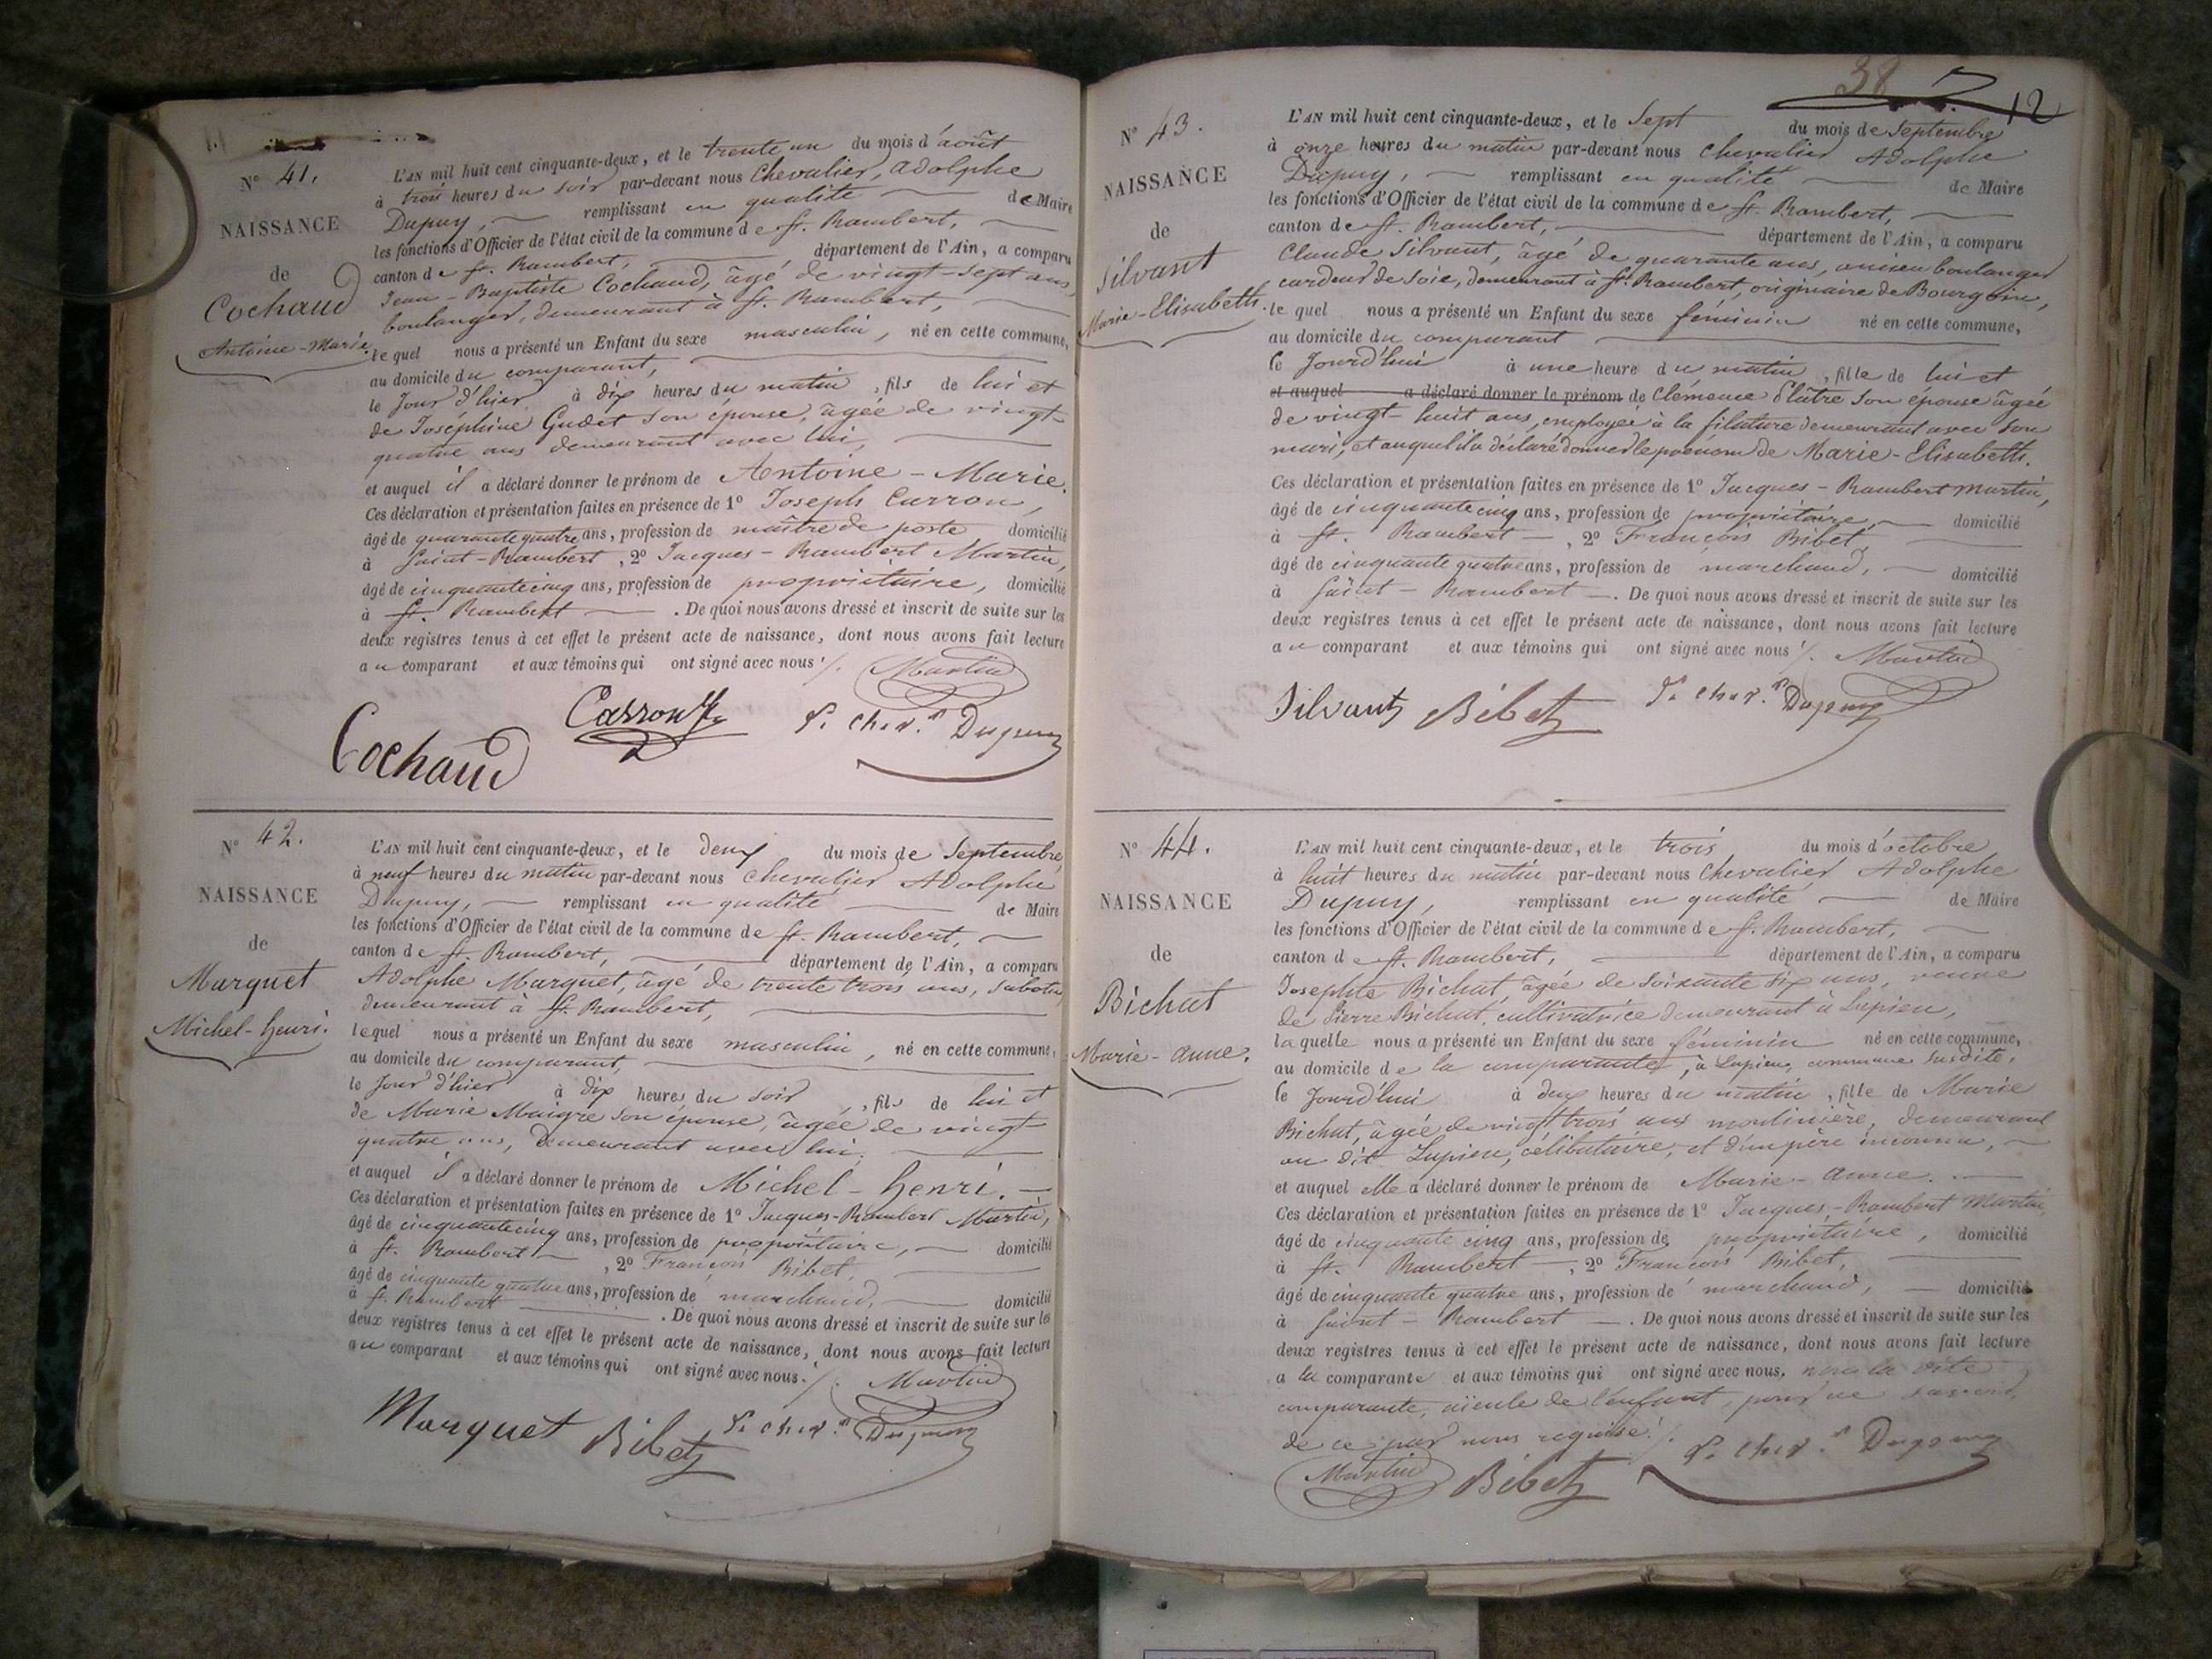 N° 41.
NAISSANCE
de
Cochaud
Antoine-Marie.
L'AN mil huit cent cinquante-deux, et le trente un du mois d'août
à trois heures du soir par-devant nous Chevalier, Adolphe
Dupuy, remplissant en qualité de Maire
les fonctions d'Officier de l'état civil de la commune de St. Rambert,
canton de St. Rambert, département de l'Ain, a comparu
Jean-Baptiste Cochaud, âgé de vingt-sept ans,
boulanger, demeurant à St. Rambert,
lequel nous a présenté un Enfant du sexe masculin, né en cette commune,
au domicile du comparant,
le jour d'hier à dix heures du matin, fils de lui et
de Joséphine Gudet son épouse, âgée de vingt-
quatre ans demeurant avec lui,
et auquel il a déclaré donner le prénom de Antoine-Marie.
Ces déclaration et présentation faites en présence de 1° Joseph Carron,
âgé de quarante quatre ans, profession de maître de poste domicilié
à Saint-Rambert, 2° Jacques-Rambert Martin,
âgé de cinquante cinq ans, profession de propriétaire, domicilié
à St. Rambert. De quoi nous avons dressé et inscrit de suite sur les
deux registres tenus à cet effet le présent acte de naissance, dont nous avons fait lecture
au comparant et aux témoins qui ont signé avec nous ./. Martin
Cochaud Carron Chev. Dupuy
N° 42.
NAISSANCE
de
Marquet
Michel-henri.
L'AN mil huit cent cinquante-deux, et le deux du mois de Septembre
à neuf heures du matin par-devant nous Chevalier Adolphe
Dupuy, remplissant en qualité de Maire
les fonctions d'Officier de l'état civil de la commune de St. Rambert,
canton de St. Rambert, département de l'Ain, a comparu
Adolphe Marquet, âgé de trente trois ans,
demeurant à St. Rambert,
lequel nous a présenté un Enfant du sexe masculin, né en cette commune,
au domicile du comparant,
le jour d'hier à dix heures du soir, fils de lui et
de Marie Maigre son épouse, âgée de vingt-
quatre ans, demeurant avec lui,
et auquel il a déclaré donner le prénom de Michel-henri.
Ces déclaration et présentation faites en présence de 1° Jacques-Rambert Martin,
âgé de cinquante cinq ans, profession de propriétaire, domicilié
à St. Rambert, 2° François Bibet,
âgé de cinquante quatre ans, profession de marchand, domicilié
à St. Rambert. De quoi nous avons dressé et inscrit de suite sur les
deux registres tenus à cet effet le présent acte de naissance, dont nous avons fait lecture
au comparant et aux témoins qui ont signé avec nous ./. Martin
Marquet Bibet Chev. Dupuy
38
12
N° 43.
NAISSANCE
de
Silvant
Marie-Elisabeth.
L'AN mil huit cent cinquante-deux, et le sept du mois de Septembre
à onze heures du matin par-devant nous Chevalier Adolphe
Dupuy, remplissant en qualité de Maire
les fonctions d'Officier de l'état civil de la commune de St. Rambert,
canton de St. Rambert, département de l'Ain, a comparu
Claude Silvant, âgé de quarante ans, ancien boulanger
cardeur de soie, demeurant à St. Rambert, originaire de Bourgoin,
lequel nous a présenté un Enfant du sexe féminin né en cette commune,
au domicile du comparant
le jourd'hui à une heure du matin, fille de lui et
et auquel a déclaré donner le prénom de Clémence Plâtre son épouse âgée
de vingt-huit ans, employée à la filature demeurant avec son
mari, et auquel il a déclaré donner le prénom de Marie-Elisabeth.
Ces déclaration et présentation faites en présence de 1° Jacques-Rambert Martin,
âgé de cinquante cinq ans, profession de propriétaire, domicilié
à St. Rambert, 2° François Bibet,
âgé de cinquante quatre ans, profession de marchand, domicilié
à Saint-Rambert. De quoi nous avons dressé et inscrit de suite sur les
deux registres tenus à cet effet le présent acte de naissance, dont nous avons fait lecture
au comparant et aux témoins qui ont signé avec nous ./. Martin
Silvant Bibet Chev. Dupuy
N° 44.
NAISSANCE
de
Bichat
Marie-anne.
L'AN mil huit cent cinquante-deux, et le trois du mois d'octobre
à huit heures du matin par-devant nous Chevalier Adolphe
Dupuy, remplissant en qualité de Maire
les fonctions d'Officier de l'état civil de la commune de St. Rambert,
canton de St. Rambert, département de l'Ain, a comparu
Josephte Bichat, âgée de soixante dix ans, veuve
de Pierre Bichat, cultivatrice demeurant à Lupieu,
laquelle nous a présenté un Enfant du sexe féminin né en cette commune,
au domicile de la comparante, à Lupieu, commune susdite,
le jourd'hui à deux heures du matin, fille de Marie
Bichat, âgée de vingt trois ans moulinière, demeurant
au dit Lupieu, célibataire, et d'un père inconnu,
et auquel elle a déclaré donner le prénom de Marie-anne.
Ces déclaration et présentation faites en présence de 1° Jacques-Rambert Martin,
âgé de cinquante cinq ans, profession de propriétaire, domicilié
à St. Rambert, 2° François Bibet,
âgé de cinquante quatre ans, profession de marchand, domicilié
à Saint-Rambert. De quoi nous avons dressé et inscrit de suite sur les
deux registres tenus à cet effet le présent acte de naissance, dont nous avons fait lecture
a la comparante et aux témoins qui ont signé avec nous, non la dite
comparante, aïeule de l'enfant, pour ne savoir,
de ce par nous requise ./.
Martin Bibet Chev. Dupuy